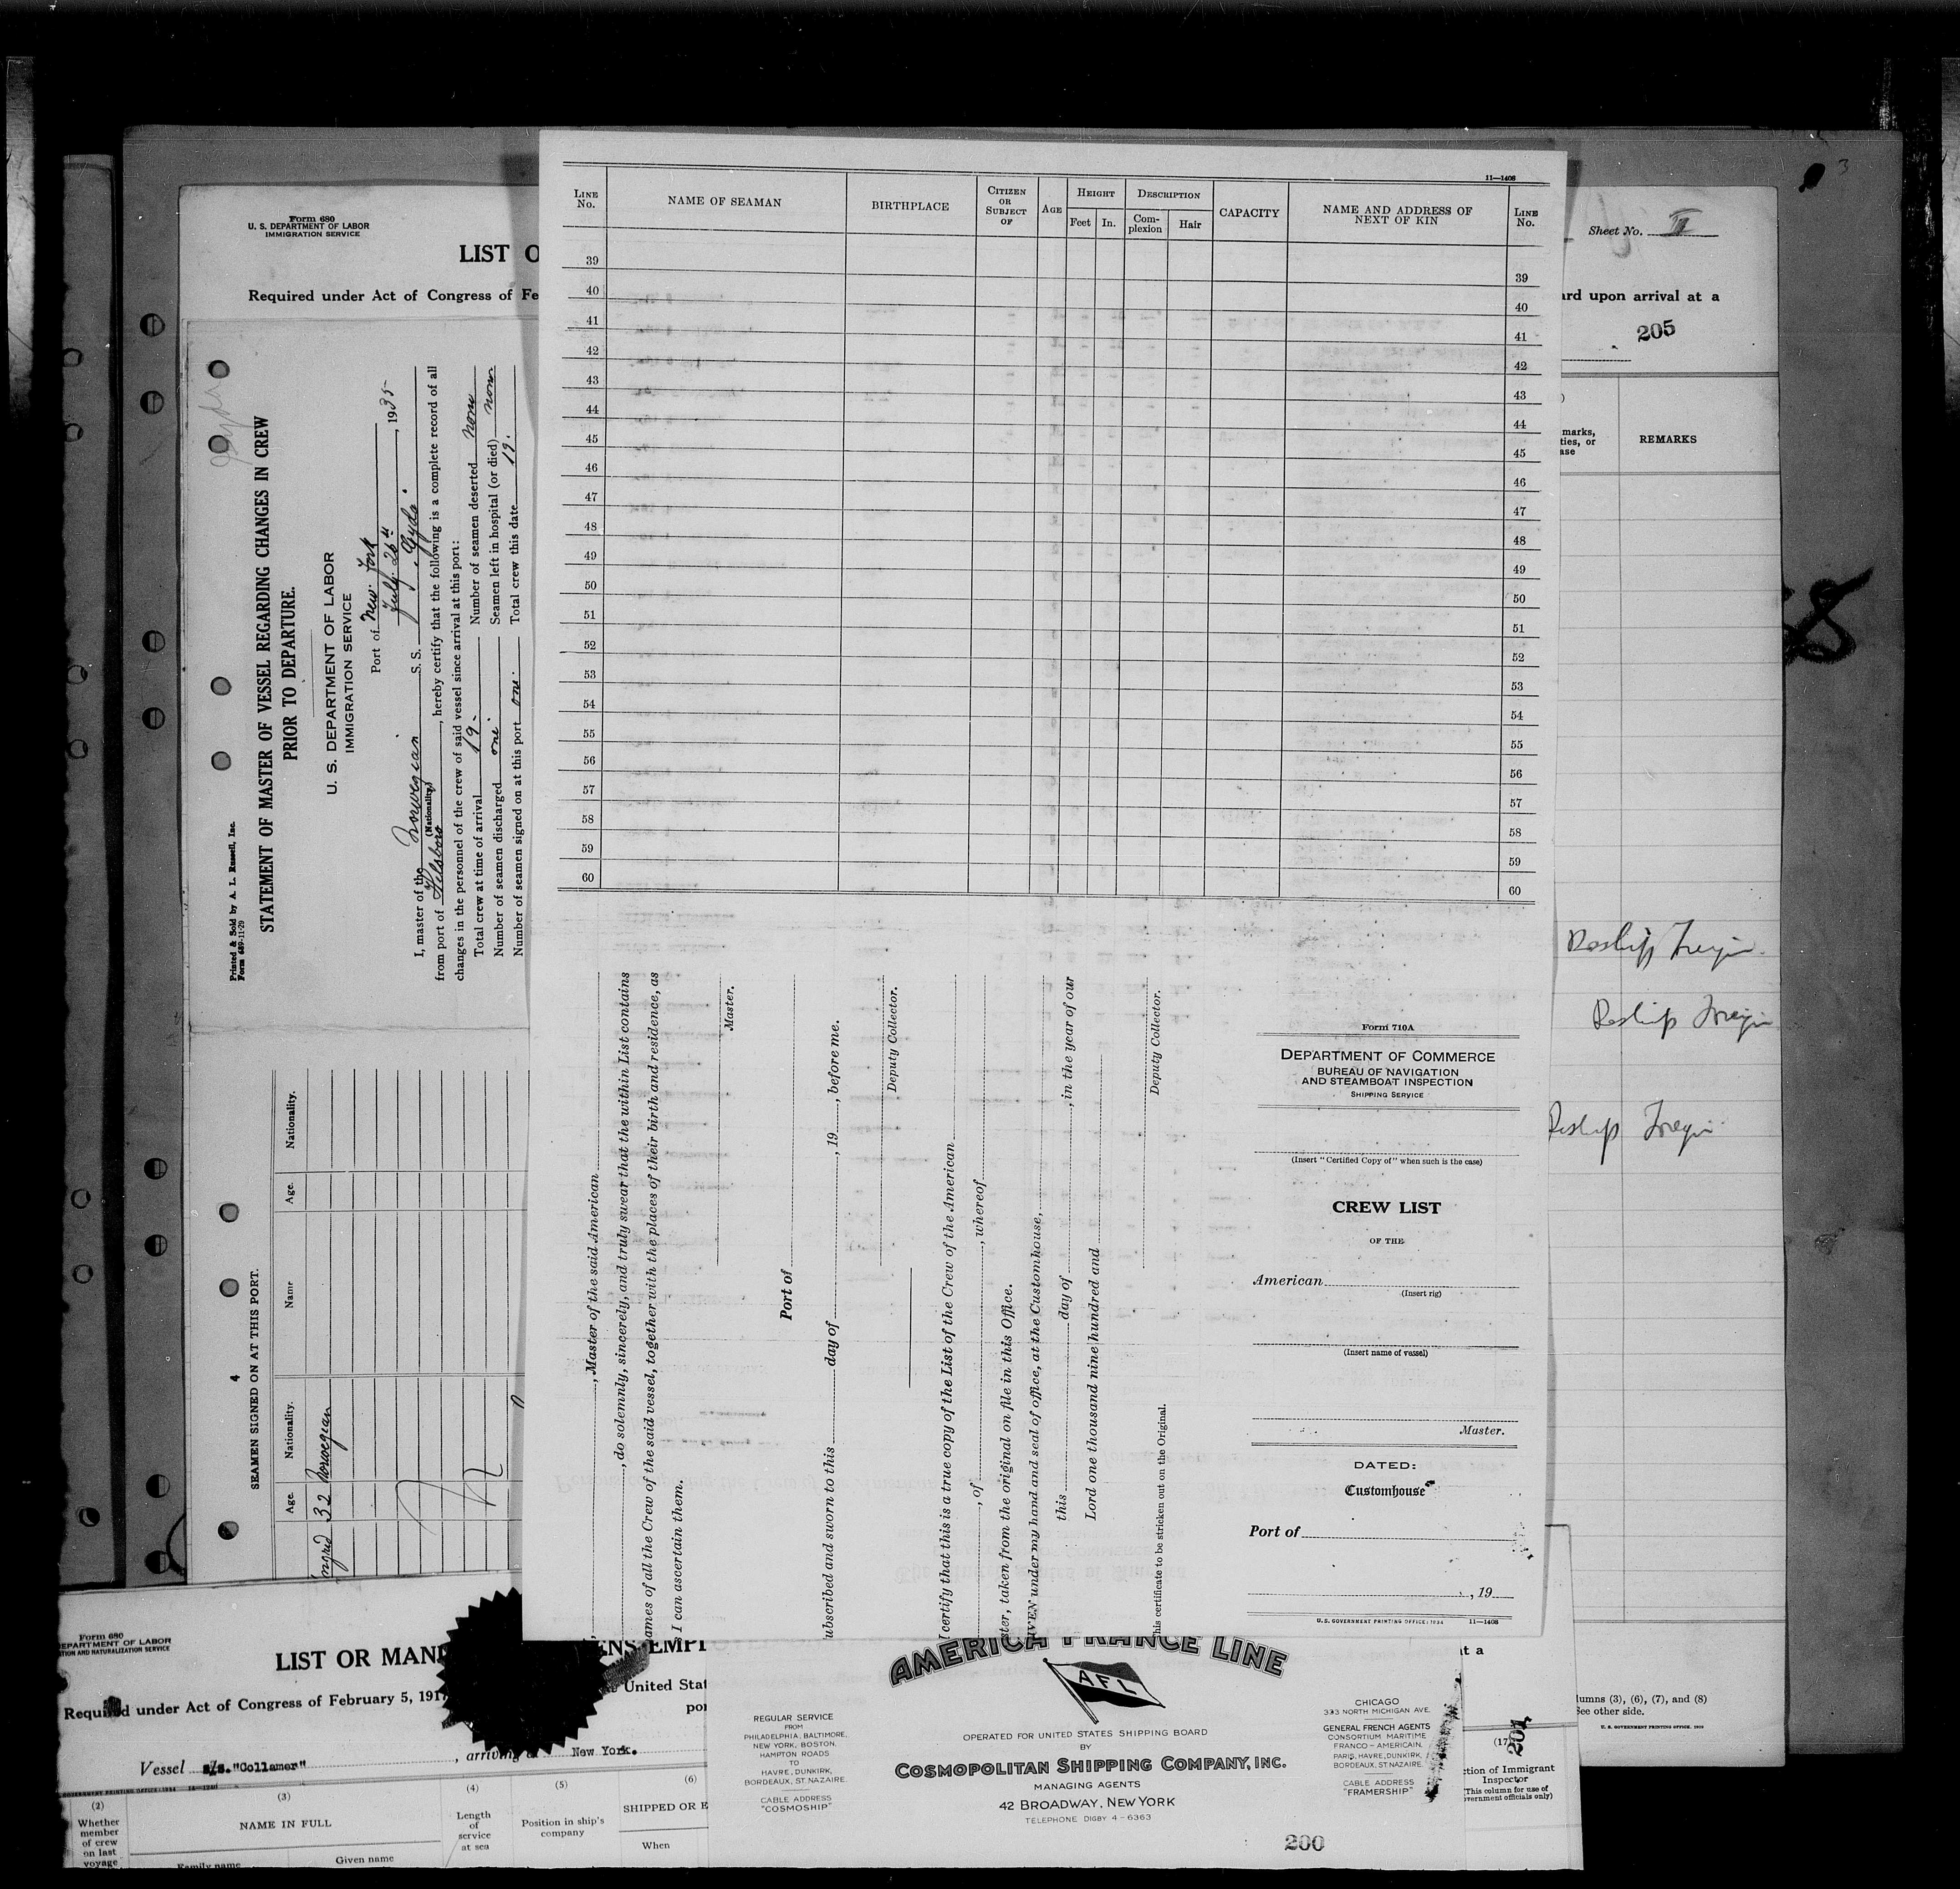 3
Form 680
U. S. DEPARTMENT OF LABOR
IMMIGRATION SERVICE
LIST O
Required under Act of Congress of Fe
Sheet No. II
ard upon arrival at a
205
marks,
ties, or
ase
REMARKS
Reship Foreign
Reship Foreign
Reship Foreign
lumns (3), (6), (7), and (8)
See other side.
U. S. GOVERNMENT PRINTING OFFICE
Printed & Sold by A. L. Russell, Inc.
Form 689-11-29
STATEMENT OF MASTER OF VESSEL REGARDING CHANGES IN CREW
PRIOR TO DEPARTURE.
U. S. DEPARTMENT OF LABOR
IMMIGRATION SERVICE
Port of New York
July 26th, 1935
I, master of the Norwegian S. S. Gyda.
(Nationality)
from port of Hilsboro, hereby certify that the following is a complete record of all
changes in the personnel of the crew of said vessel since arrival at this port:
Total crew at time of arrival 19. Number of seamen deserted none
Number of seamen discharged one Seamen left in hospital (or died) none
Number of seamen signed on at this port one. Total crew this date 19.
4
SEAMEN SIGNED ON AT THIS PORT.
Age. Nationality. Name Age. Nationality.
32 Norwegian
11—1408
LINE No. NAME OF SEAMAN BIRTHPLACE CITIZEN OR SUBJECT OF AGE HEIGHT DESCRIPTION CAPACITY NAME AND ADDRESS OF NEXT OF KIN LINE No.
Feet In. Complexion Hair
39 39
40 40
41 41
42 42
43 43
44 44
45 45
46 46
47 47
48 48
49 49
50 50
51 51
52 52
53 53
54 54
55 55
56 56
57 57
58 58
59 59
60 60
, Master of the said American
, do solemnly, sincerely, and truly swear that the within List contains
ames of all the Crew of the said vessel, together with the places of their birth and residence, as
I can ascertain them.
Master.
Port of
ubscribed and sworn to this day of , 19 , before me.
Deputy Collector.
I certify that this is a true copy of the List of the Crew of the American
, of , whereof
ster, taken from the original on file in this Office.
IVEN under my hand and seal of office, at the Customhouse,
this day of , in the year of our
Lord one thousand nine hundred and
Deputy Collector.
his certificate to be stricken out on the Original.
Form 710A
DEPARTMENT OF COMMERCE
BUREAU OF NAVIGATION
AND STEAMBOAT INSPECTION
SHIPPING SERVICE
(Insert "Certified Copy of" when such is the case)
CREW LIST
OF THE
American
(Insert rig)
(Insert name of vessel)
Master.
DATED:
Customhouse
Port of
, 19
U.S. GOVERNMENT PRINTING OFFICE: 1934 11—1408
Form 680
EPARTMENT OF LABOR
TION AND NATURALIZATION SERVICE
LIST OR MANI
ENS EMPL
Required under Act of Congress of February 5, 1917
United Stat
por
Vessel S/S. "Collamer" , arriving at New York.
(2) (3) (4) (5) (6)
Whether
member
of crew
on last
voyage
NAME IN FULL
Family name Given name
Length
of
service
at sea
Position in ship's
company
SHIPPED OR E
When
AMERICA FRANCE LINE
AFL
REGULAR SERVICE
FROM
PHILADELPHIA, BALTIMORE,
NEW YORK, BOSTON,
HAMPTON ROADS
TO
HAVRE, DUNKIRK,
BORDEAUX, ST. NAZAIRE.
CABLE ADDRESS
"COSMOSHIP"
OPERATED FOR UNITED STATES SHIPPING BOARD
BY
COSMOPOLITAN SHIPPING COMPANY, INC.
MANAGING AGENTS
42 BROADWAY, NEW YORK
TELEPHONE DIGBY 4-6363
CHICAGO
333 NORTH MICHIGAN AVE.
GENERAL FRENCH AGENTS
CONSORTIUM MARITIME
FRANCO-AMERICAIN.
PARIS, HAVRE, DUNKIRK,
BORDEAUX, ST. NAZAIRE.
CABLE ADDRESS
"FRAMERSHIP"
200
t a
(17)
201
ction of Immigrant
Inspector
(This column for use of
vernment officials only)